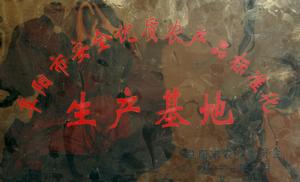 阳市安全优质农产品标准化
生产基地